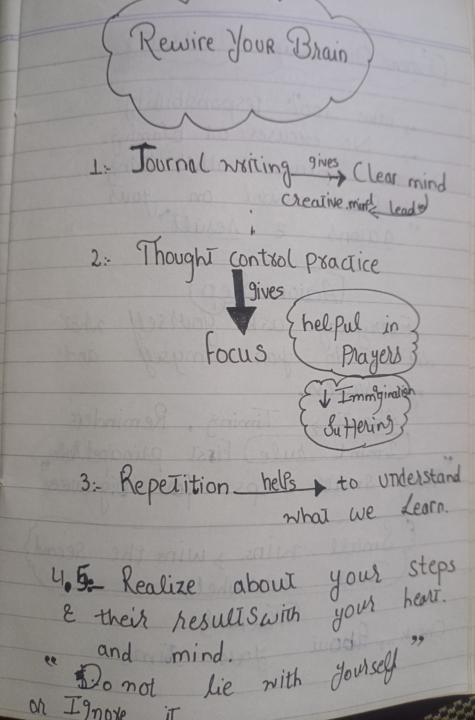 Rewire Your Brain
1:- Journal writing gives → Clear mind
Creative mind ← lead
2:- Thought control practice
gives
focus
helpful in
Prayers
↓ Immgination
Suffering
3:- Repetition helps → to understand
what we Learn.
4.5:- Realize about your steps
& their results with your heart.
and mind.
“Do not lie with yourself”
or Ignore it